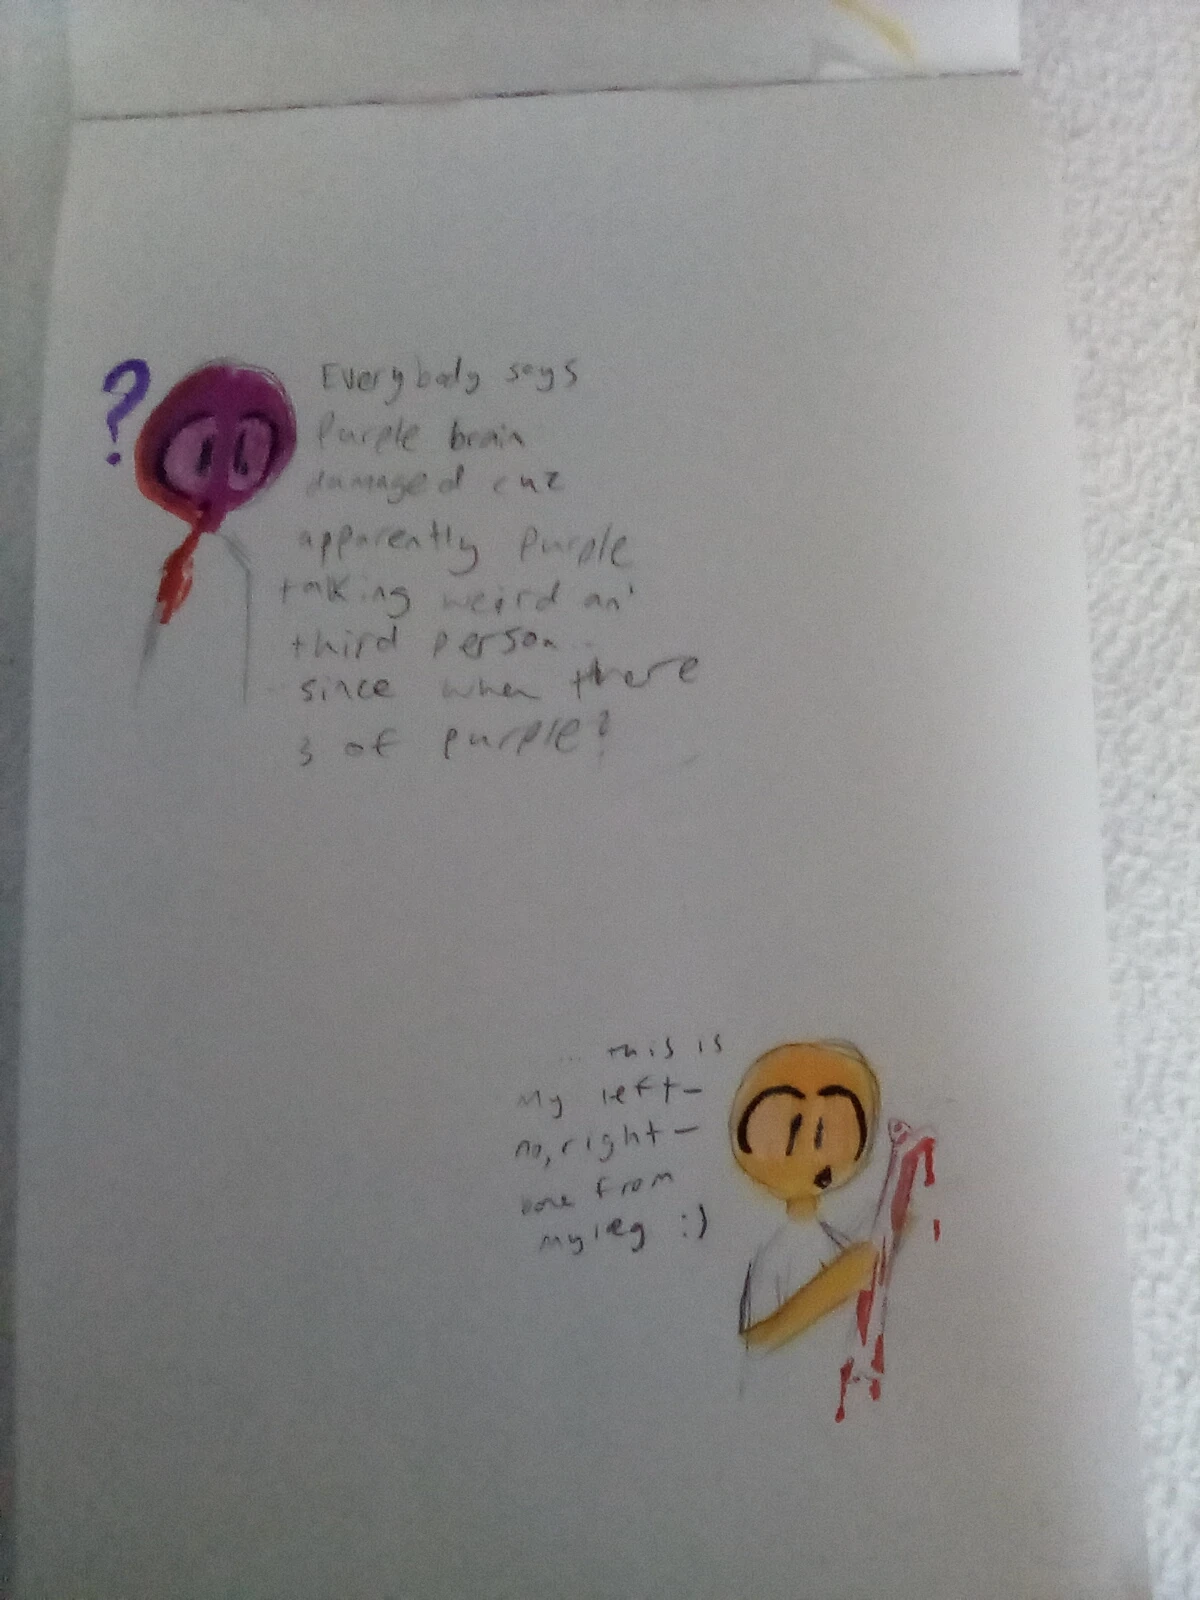 ?
Everybody says
Purple brain
damaged cuz
apparently Purple
talking weird an'
third person..
since when there
3 of purple?
... this is
My left-
no, right-
bone from
my leg :)